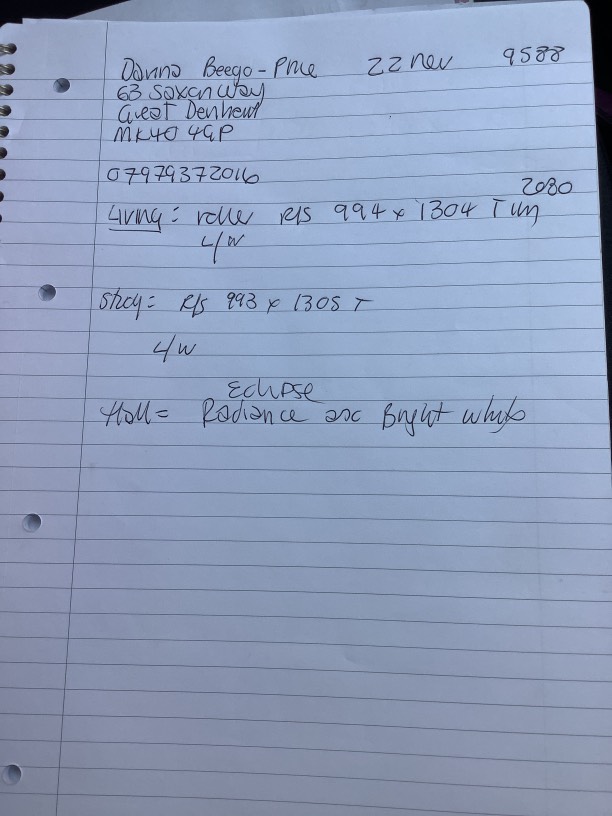 Donna Beego-Price 22 nov 9588
63 Saxon Way
Great Denham
MK40 4GP
07979372016
2080
Living: roller R/S 994 x 1304 T
L/W
Study= R/S 993 x 1305 T
L/W
Eclipse
Hall= Radiance Bright white